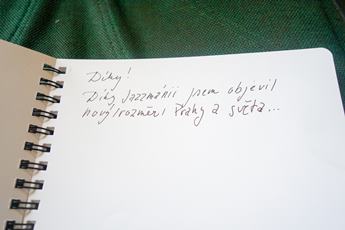 Díky!
Díky Jazzmánii jsem objevil
nový rozměr Prahy a světa...